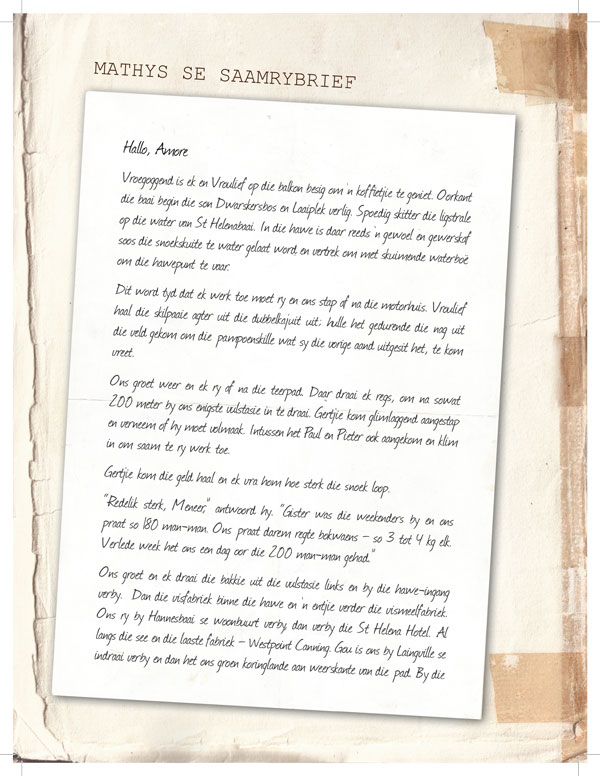 MATHYS SE SAAMRYBRIEF
Hallo, Amore
Vroegoggend is ek en Vroulief op die balkon besig om 'n koffietjie te geniet. Oorkant
die baai begin die son Dwarskersbos en Laaiplek verlig. Spoedig skitter die ligstrale
op die water van St Helenabaai. In die hawe is daar reeds 'n gewoel en gewerskaf
soos die snoekskuite te water gelaat word en vertrek om met skuimende waterboë
om die hawepunt te vaar.
Dit word tyd dat ek werk toe moet ry en ons stap af na die motorhuis. Vroulief
haal die skilpaaie agter uit die dubbelkajuit uit; hulle het gedurende die nag uit
die veld gekom om die pampoenskille wat sy die vorige aand uitgesit het, te kom
vreet.
Ons groet weer en ek ry af na die teerpad. Daar draai ek regs, om na sowat
200 meter by ons enigste vulstasie in te draai. Gertjie kom glimlaggend aangestap
en verneem of hy moet volmaak. Intussen het Paul en Pieter ook aangekom en klim
in om saam te ry werk toe.
Gertjie kom die geld haal en ek vra hom hoe sterk die snoek loop.
"Redelik sterk, Meneer," antwoord hy. "Gister was die weekenders by en ons
praat so 180 man-man. Ons praat darem regte bokwaens – so 3 tot 4 kg elk.
Verlede week het ons een dag oor die 200 man-man gehad."
Ons groet en ek draai die bakkie uit die vulstasie links en by die hawe-ingang
verby. Dan die visfabriek binne die hawe en 'n entjie verder die vismeelfabriek.
Ons ry by Hannesbaai se woonbuurt verby, dan verby die St Helena Hotel. Al
langs die see en die laaste fabriek – Westpoint Canning. Gou is ons by Laingville se
indraai verby en dan het ons groen koringlande aan weerskante van die pad. By die